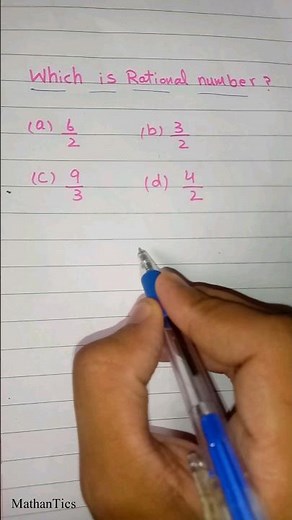 Which is Rational number?
(a) 6/2 (b) 3/2
(C) 9/3 (d) 4/2
MathanTics